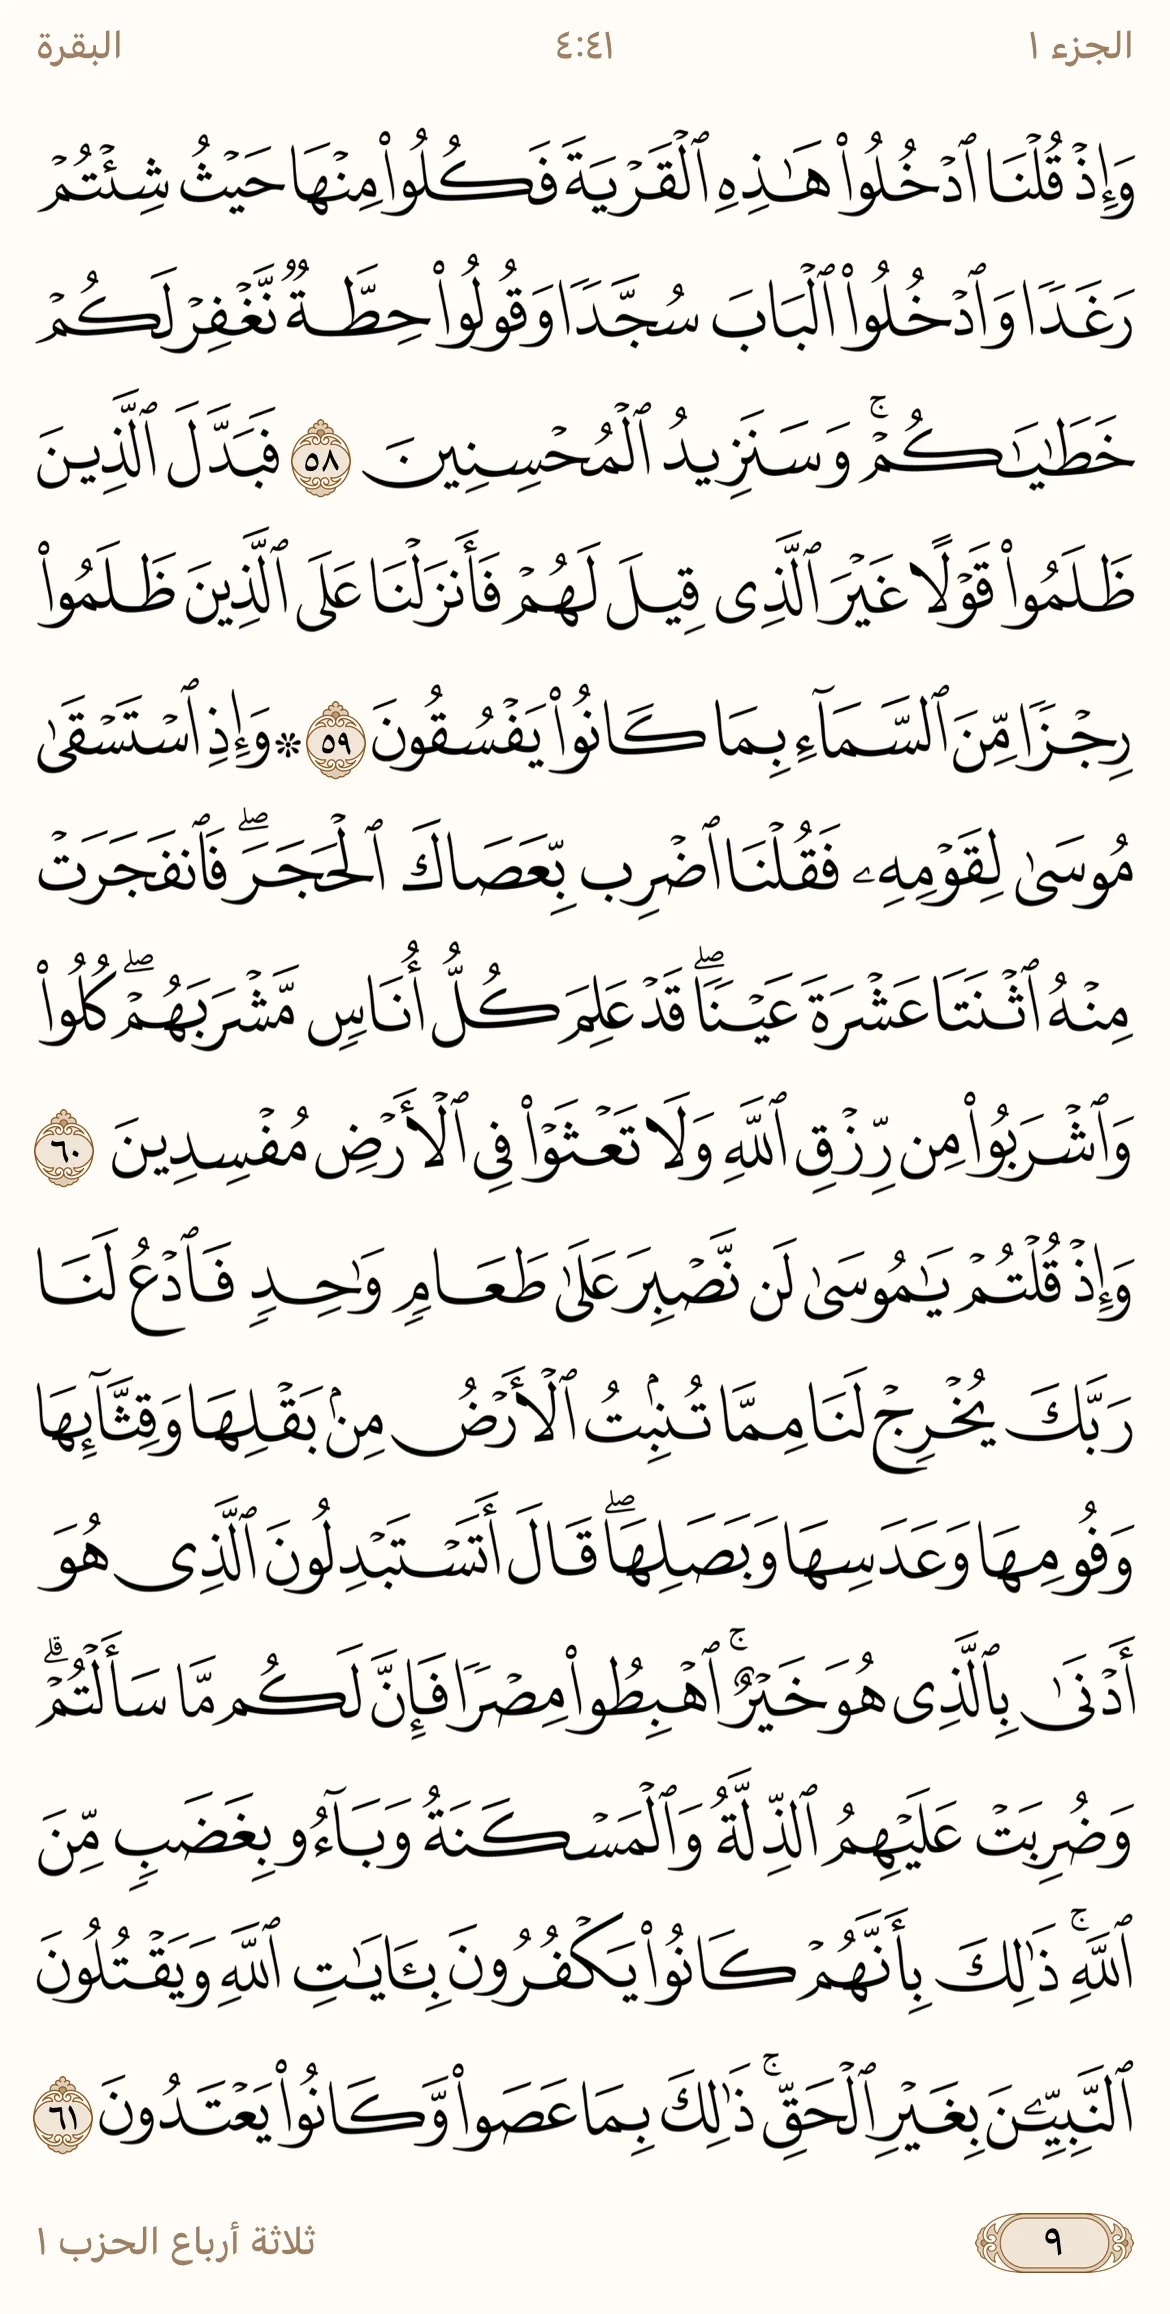 الجزء ١
٤:٤١
البقرة
وَإِذۡ قُلۡنَا ٱدۡخُلُواْ هَٰذِهِ ٱلۡقَرۡيَةَ فَكُلُواْ مِنۡهَا حَيۡثُ شِئۡتُمۡ
رَغَدٗا وَٱدۡخُلُواْ ٱلۡبَابَ سُجَّدٗا وَقُولُواْ حِطَّةٞ نَّغۡفِرۡ لَكُمۡ
خَطَٰيَٰكُمۡۚ وَسَنَزِيدُ ٱلۡمُحۡسِنِينَ ٥٨ فَبَدَّلَ ٱلَّذِينَ
ظَلَمُواْ قَوۡلًا غَيۡرَ ٱلَّذِي قِيلَ لَهُمۡ فَأَنزَلۡنَا عَلَى ٱلَّذِينَ ظَلَمُواْ
رِجۡزٗا مِّنَ ٱلسَّمَآءِ بِمَا كَانُواْ يَفۡسُقُونَ ٥٩ ۞ وَإِذِ ٱسۡتَسۡقَىٰ
مُوسَىٰ لِقَوۡمِهِۦ فَقُلۡنَا ٱضۡرِب بِّعَصَاكَ ٱلۡحَجَرَۖ فَٱنفَجَرَتۡ
مِنۡهُ ٱثۡنَتَا عَشۡرَةَ عَيۡنٗاۖ قَدۡ عَلِمَ كُلُّ أُنَاسٖ مَّشۡرَبَهُمۡۖ كُلُواْ
وَٱشۡرَبُواْ مِن رِّزۡقِ ٱللَّهِ وَلَا تَعۡثَوۡاْ فِي ٱلۡأَرۡضِ مُفۡسِدِينَ ٦٠
وَإِذۡ قُلۡتُمۡ يَٰمُوسَىٰ لَن نَّصۡبِرَ عَلَىٰ طَعَامٖ وَٰحِدٖ فَٱدۡعُ لَنَا
رَبَّكَ يُخۡرِجۡ لَنَا مِمَّا تُنۢبِتُ ٱلۡأَرۡضُ مِنۢ بَقۡلِهَا وَقِثَّآئِهَا
وَفُومِهَا وَعَدَسِهَا وَبَصَلِهَاۖ قَالَ أَتَسۡتَبۡدِلُونَ ٱلَّذِي هُوَ
أَدۡنَىٰ بِٱلَّذِي هُوَ خَيۡرٌۚ ٱهۡبِطُواْ مِصۡرٗا فَإِنَّ لَكُم مَّا سَأَلۡتُمۡۗ
وَضُرِبَتۡ عَلَيۡهِمُ ٱلذِّلَّةُ وَٱلۡمَسۡكَنَةُ وَبَآءُو بِغَضَبٖ مِّنَ
ٱللَّهِۚ ذَٰلِكَ بِأَنَّهُمۡ كَانُواْ يَكۡفُرُونَ بِـَٔايَٰتِ ٱللَّهِ وَيَقۡتُلُونَ
ٱلنَّبِيِّـۧنَ بِغَيۡرِ ٱلۡحَقِّۚ ذَٰلِكَ بِمَا عَصَواْ وَّكَانُواْ يَعۡتَدُونَ ٦١
٩
ثلاثة أرباع الحزب ١